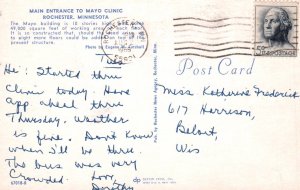 MAIN ENTRANCE TO MAYO CLINIC
ROCHESTER, MINNESOTA
The Mayo building is 10 stories high
49,000 square feet of ground area.
it is so constructed that, should the need
to eight more floors could be added on top of the
present structure.
Photo by Eugene M.
Tues
Hi: Started thru
Clinic today. Have
app ahead thru
Thursday. Weather
is fine. Don't know
when I'll be thru.
The bus was very
Crowded. Love,
Dorothy
67018-B
Pub. by Rochester News Agency, Rochester, Minn.
Post Card
Miss Katherine Frederick
617 Harrison
Beloit,
Wis